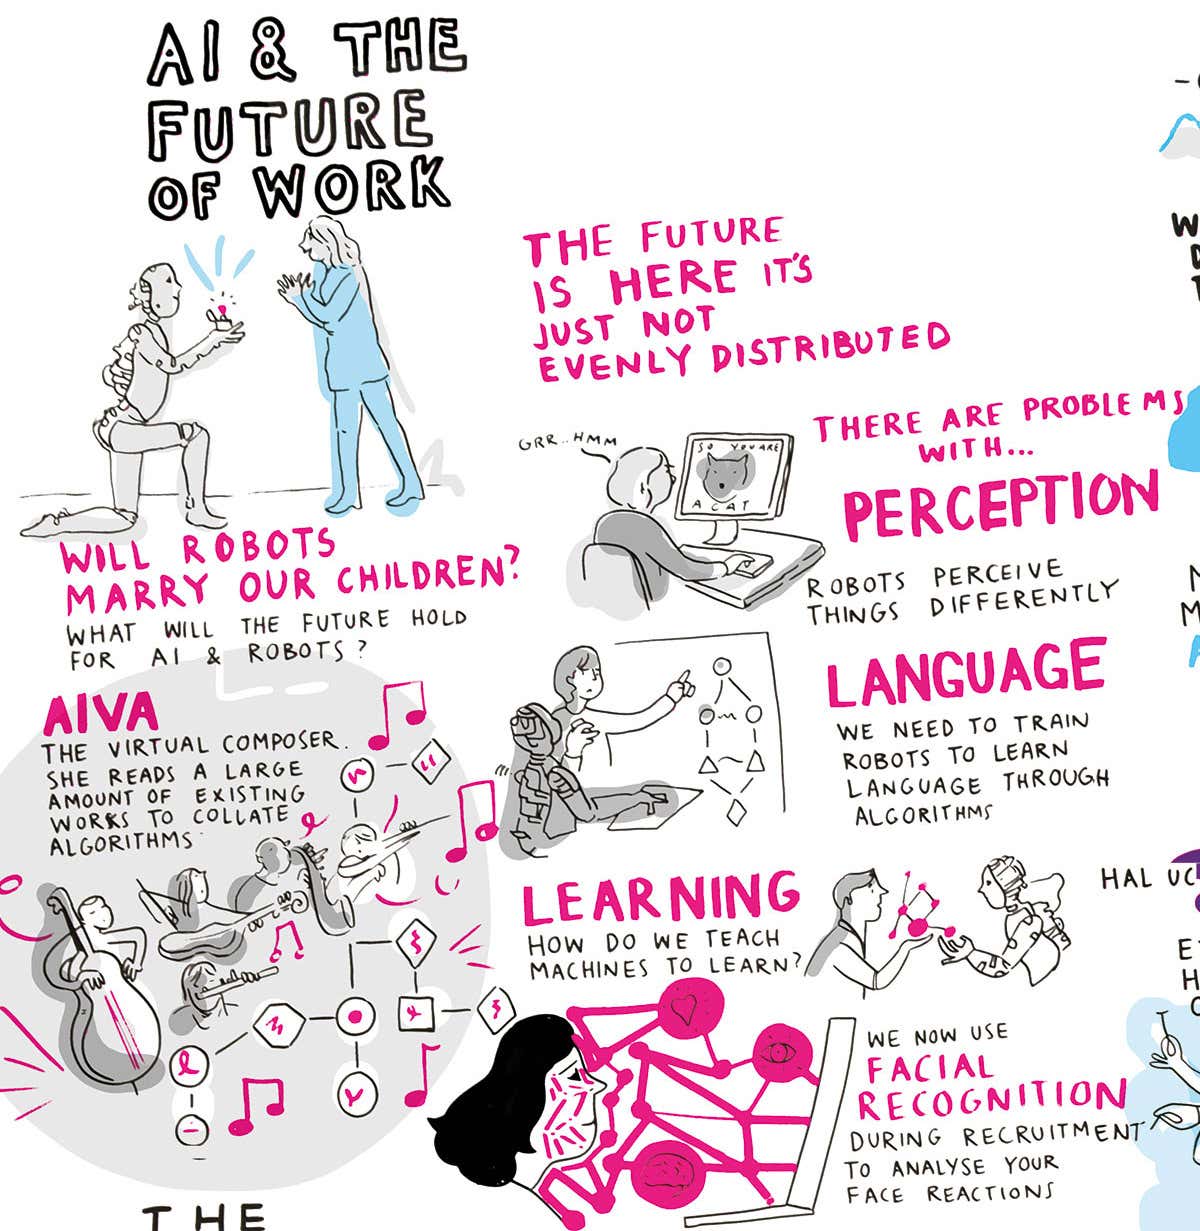 AI & THE
FUTURE
OF WORK
THE FUTURE
IS HERE IT'S
JUST NOT
EVENLY DISTRIBUTED
WILL ROBOTS
MARRY OUR CHILDREN?
WHAT WILL THE FUTURE HOLD
FOR AI & ROBOTS?
AIVA
THE VIRTUAL COMPOSER.
SHE READS A LARGE
AMOUNT OF EXISTING
WORKS TO COLLATE
ALGORITHMS
THERE ARE PROBLEMS
WITH...
GRR..HMM
SO YOU ARE
A CAT
PERCEPTION
ROBOTS PERCEIVE
THINGS DIFFERENTLY
LANGUAGE
WE NEED TO TRAIN
ROBOTS TO LEARN
LANGUAGE THROUGH
ALGORITHMS
LEARNING
HOW DO WE TEACH
MACHINES TO LEARN?
WE NOW USE
FACIAL
RECOGNITION
DURING RECRUITMENT
TO ANALYSE YOUR
FACE REACTIONS
THE
HAL